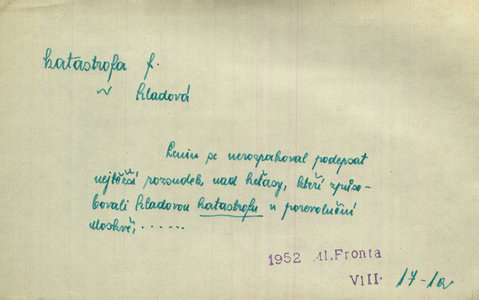 katastrofa f.
~ hladová
Lenin se nerozpakoval podepsat
nejtěžší rozsudek nad keťasy, kteří způso-
bovali hladovou katastrofu v porevoluční
Moskvě, ......
1952 Ml. Fronta
VIII. 17-1a